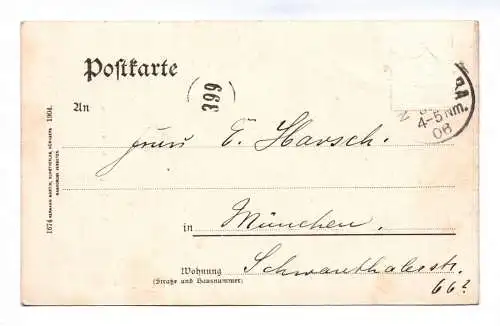 Postkarte
399
4-5 Nm.
06
An
Herrn E. Harsch.
in München.
Wohnung Schwanthalerstr.
(Straße und Hausnummer)
66²
1674 1904.